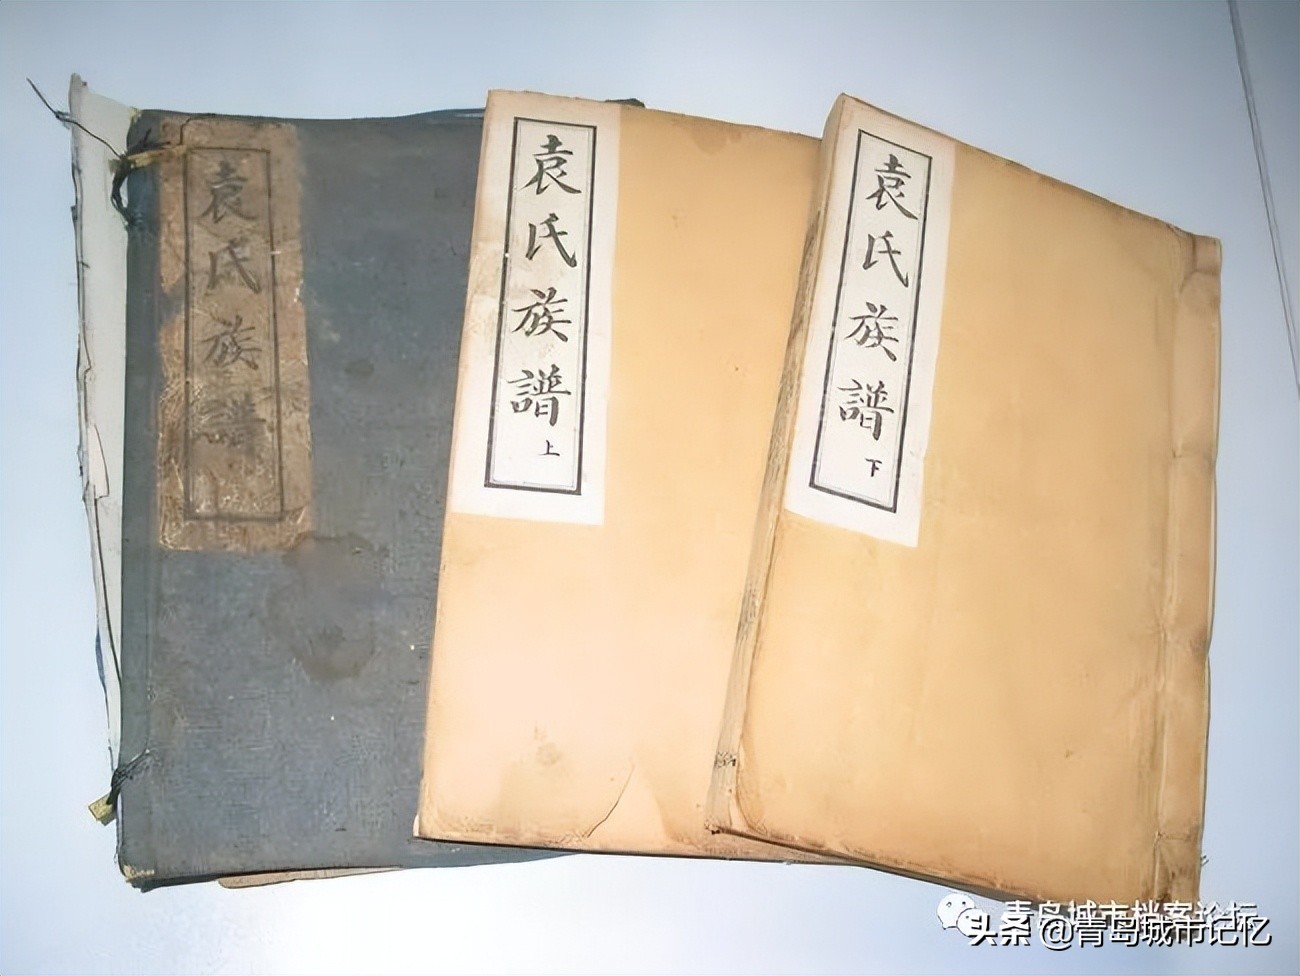 袁氏族譜
袁氏族譜
上
袁氏族譜
下
青岛城市档案论坛
头条 @青岛城市记忆